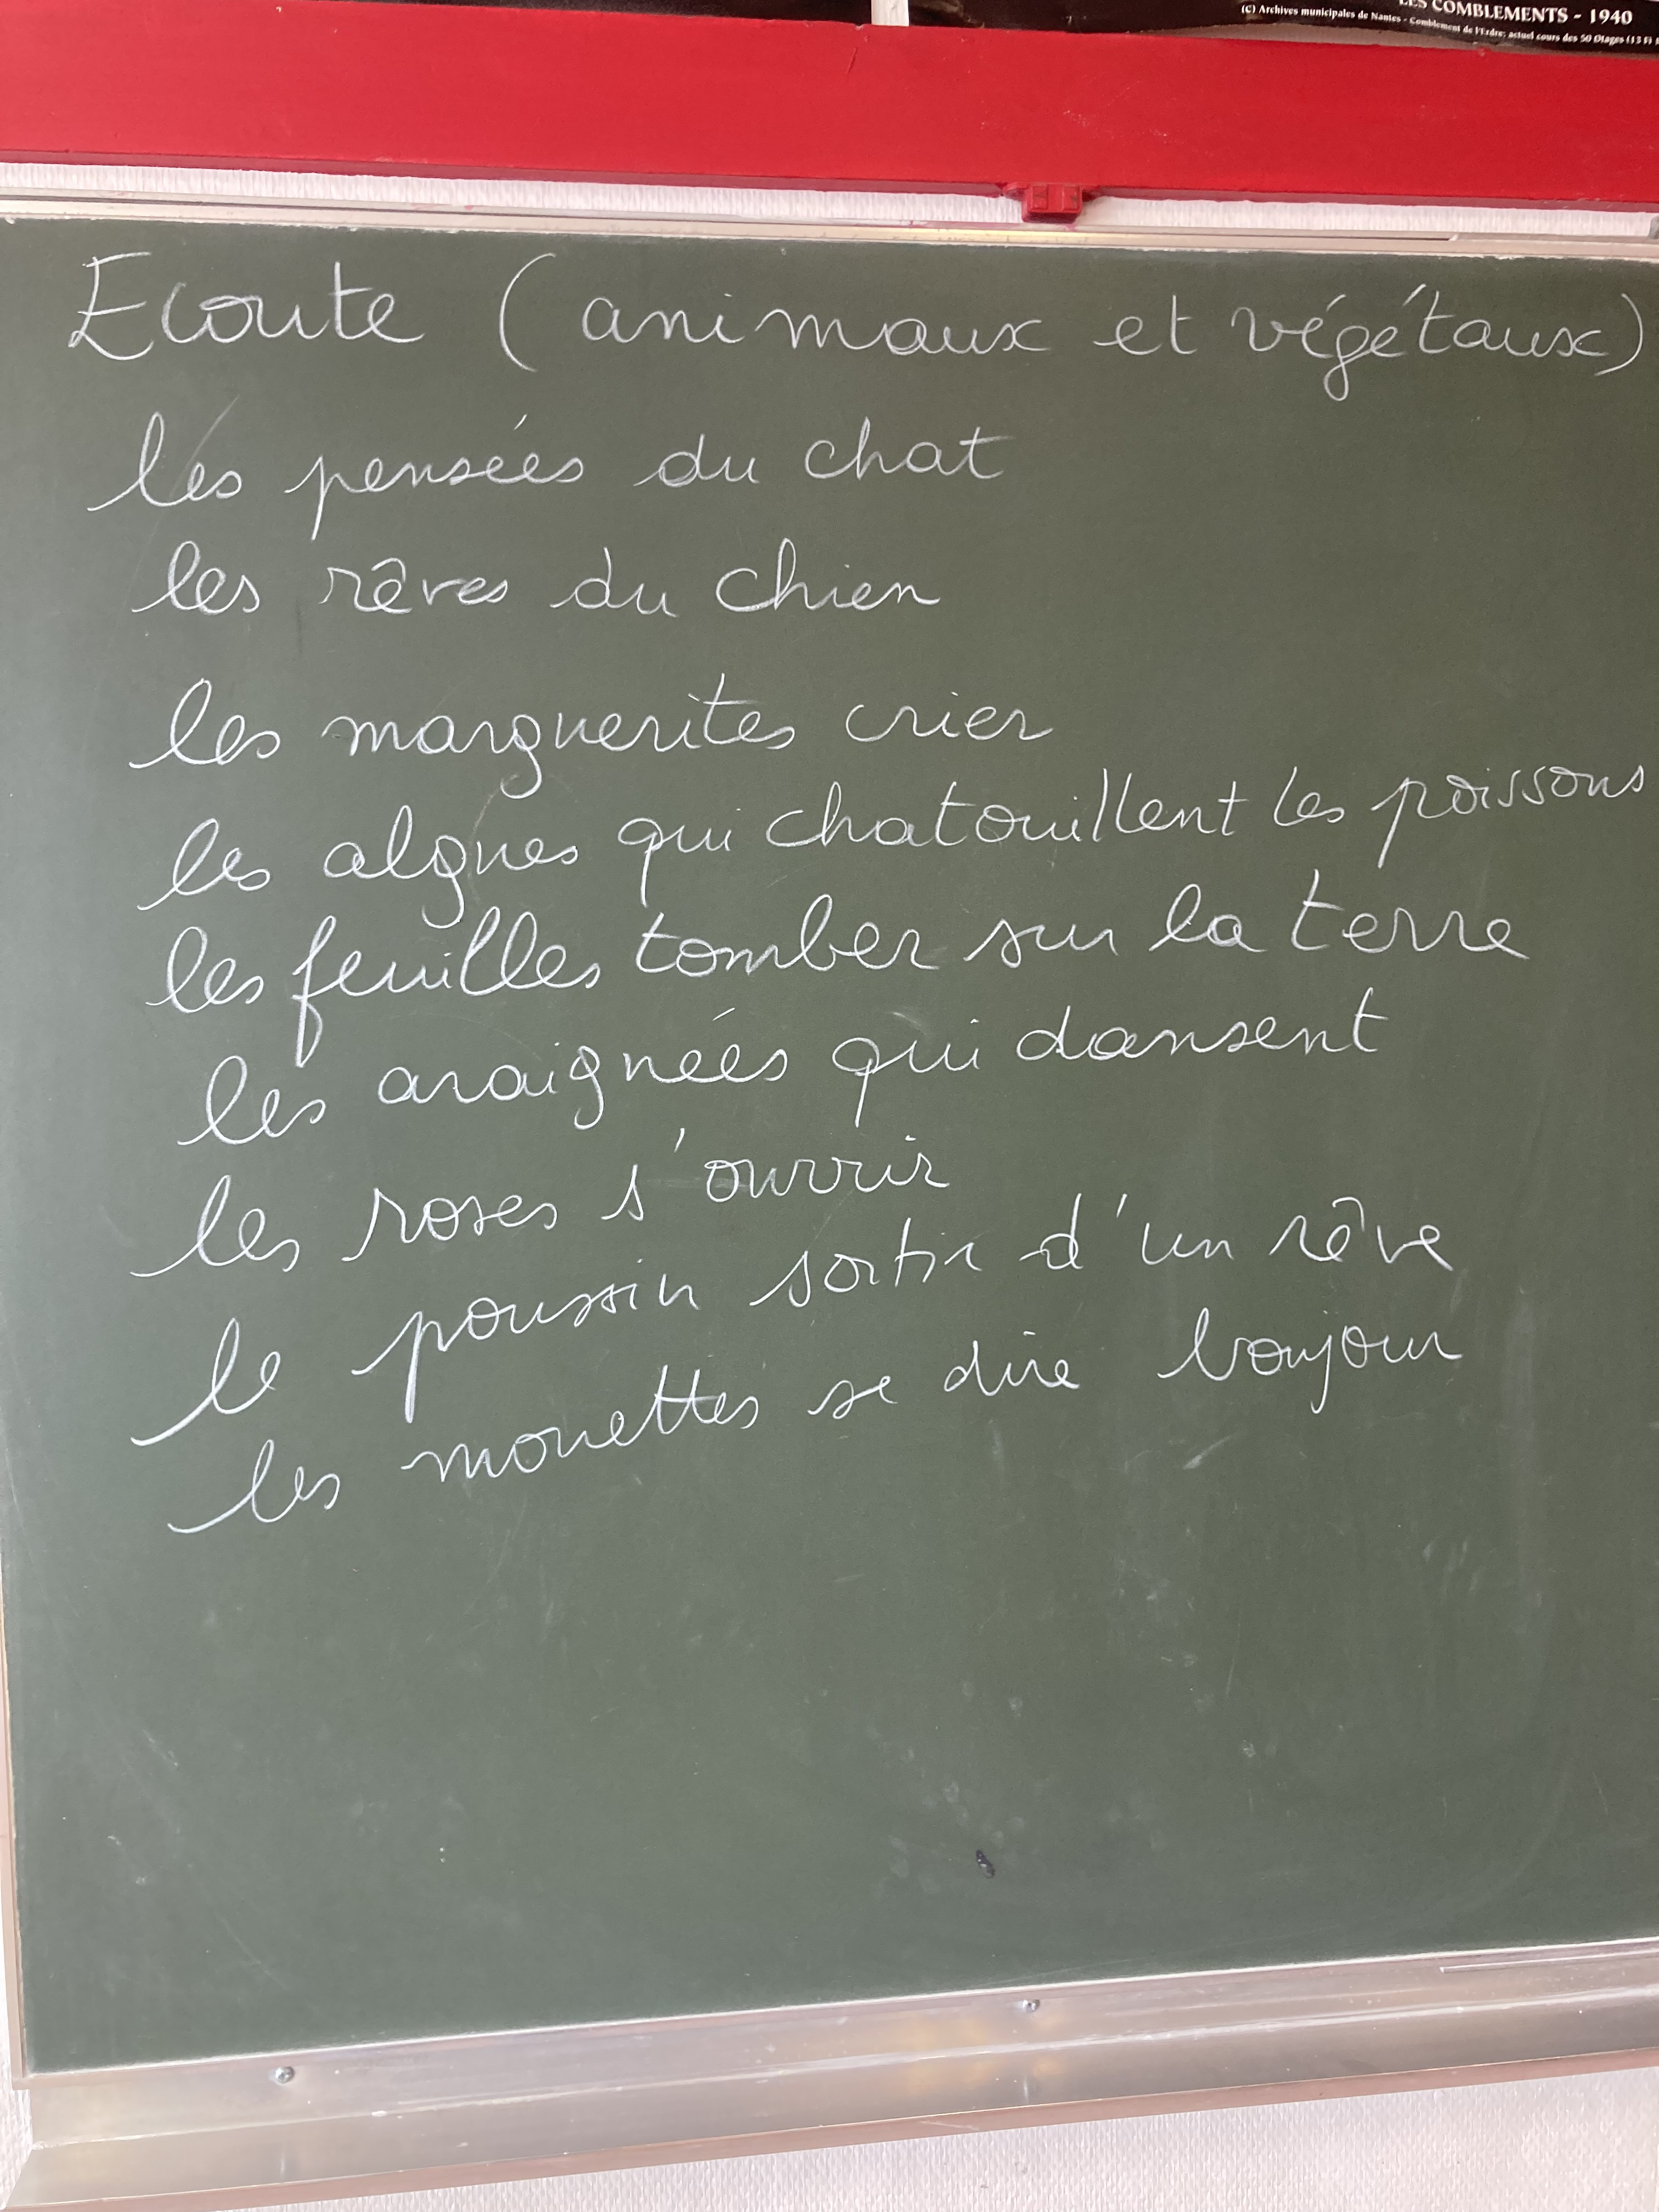 LES COMBLEMENTS - 1940
(C) Archives municipales de Nantes - Comblement de l'Erdre: actuel cours des 50 Otages (13 Fi
Ecoute (animaux et végétaux)
les pensées du chat
les rêves du chien
les marguerites crier
les algues qui chatouillent les poissons
les feuilles tomber sur la terre
les araignées qui dansent
les roses s'ouvrir
le poussin sortir d'un rêve
les mouettes se dire boujour